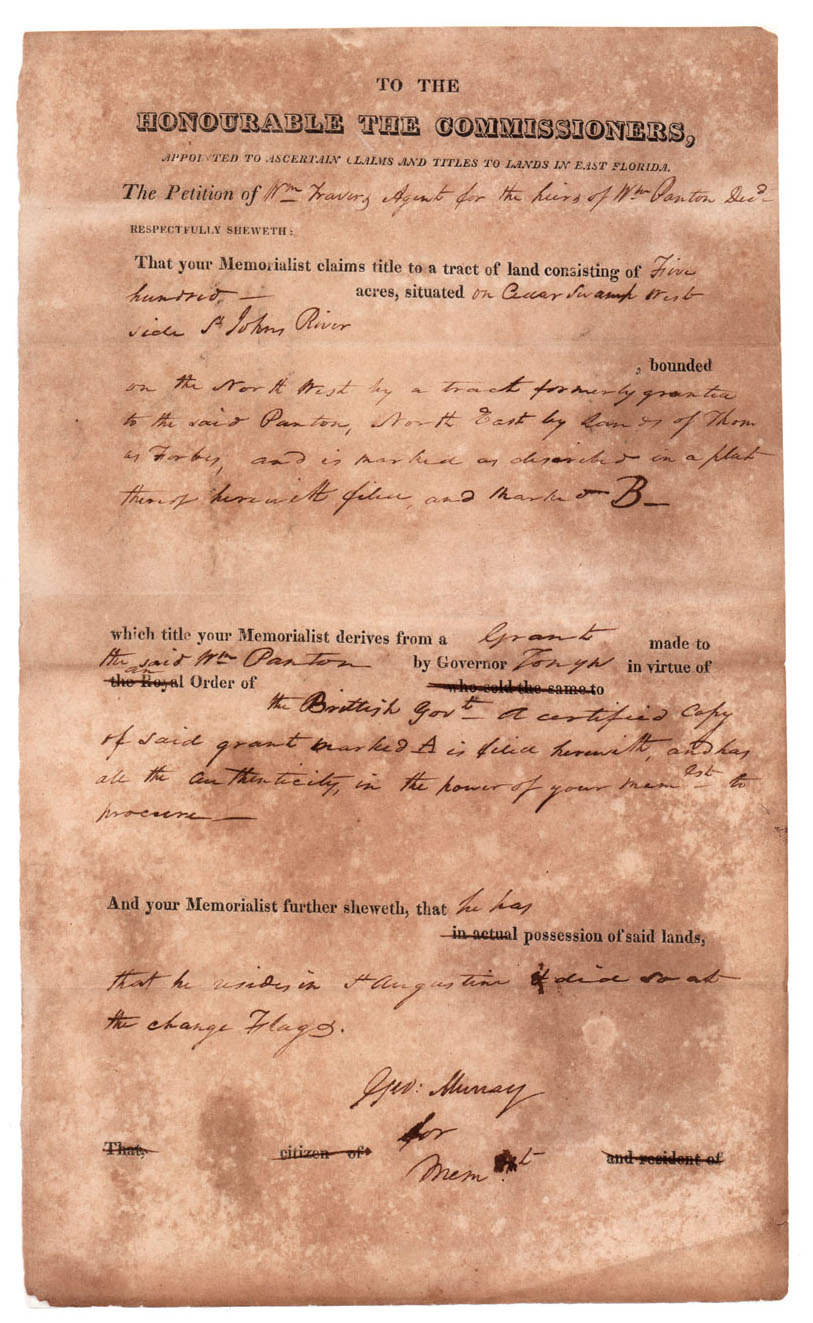 TO THE
HONOURABLE THE COMMISSIONERS,
APPOINTED TO ASCERTAIN CLAIMS AND TITLES TO LANDS IN EAST FLORIDA.
The Petition of Wm Travers Agent for the heirs of Wm Panton Decd
RESPECTFULLY SHEWETH:
That your Memorialist claims title to a tract of land consisting of Five
hundred, — acres, situated on Cedar Swamp West
side St Johns River
, bounded
on the North West by a tract formerly granted
to the said Panton, North East by Lands of Thom
as Forbes, and is marked as described in a plat
thereof herewith filed, and marked B —
which title your Memorialist derives from a Grant made to
the said Wm Panton by Governor Tonyn in virtue of
an
the Royal Order of who sold the same to
the Brittish Govt — A certified Copy
of said grant marked A is filed herewith, and has
all the authenticity, in the power of your Memlst to
procure —
And your Memorialist further sheweth, that he has
in actual possession of said lands,
that he resides in St Augustine & did so at
the change Flags.
Geo: Murray
for
That, citizen of and resident of
Mem st